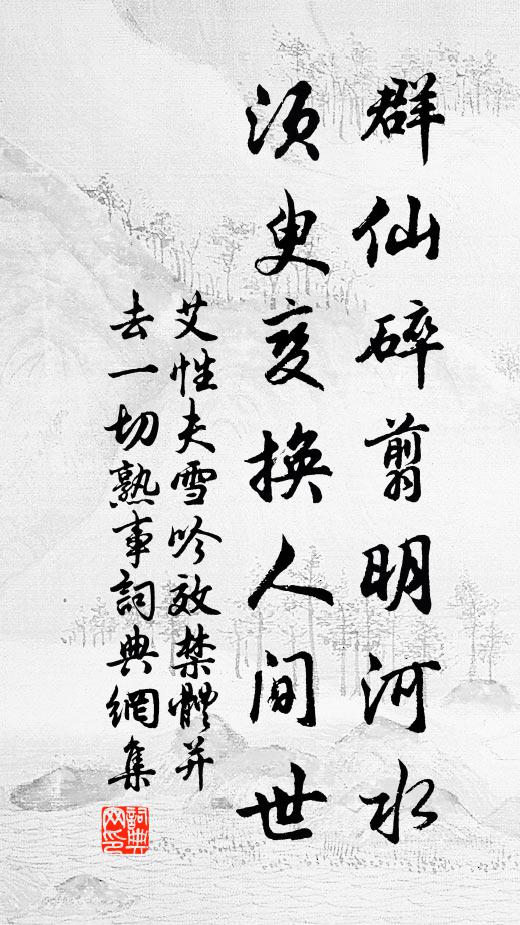 群仙碎翦明河水
須臾变換人间世
艾性夫雪吟效禁體并
去一切熟事詞典網集
詞典網印